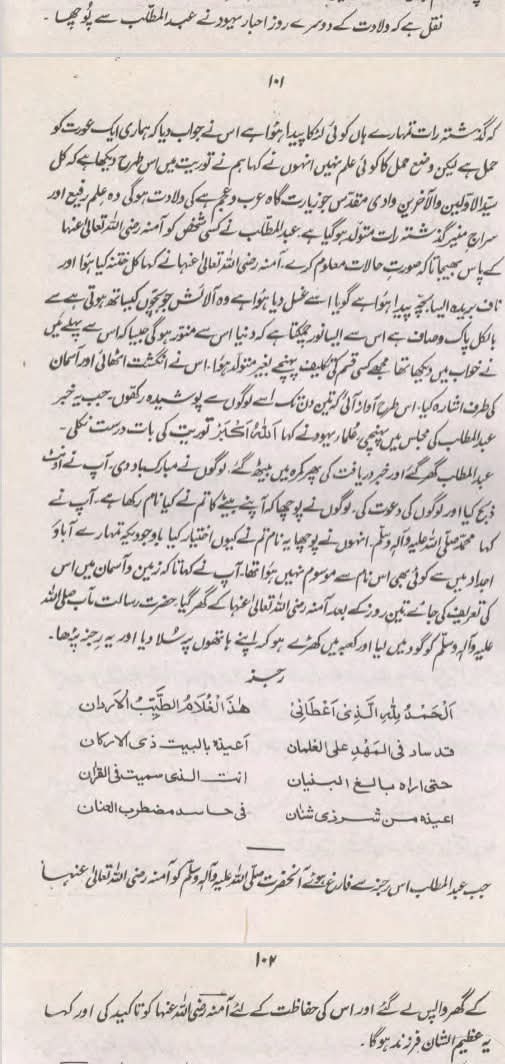 نقل ہے کہ ولادت کے دوسرے روز احبار یہود نے عبدالمطلب سے پوچھا۔
۱۰۱
کہ گذشتہ رات تمہارے ہاں کوئی لڑکا پیدا ہوا ہے اس نے جواب دیا کہ ہماری ایک عورت کو
حمل ہے لیکن وضع حمل کا کوئی علم نہیں انہوں نے کہا ہم نے توریت میں اس طرح دیکھا ہے کہ کل
سیّد الاوّلین والآخرین وادی مقدّس جو زیارت گاہ عرب و عجم ہے کی ولادت ہوگی وہ علم رفیع اور
سراج منیر گذشتہ رات متولّد ہوگیا ہے۔ عبدالمطلب نے کسی شخص کو آمنہ رضی اللہ تعالیٰ عنہا
کے پاس بھیجا تاکہ صورتِ حالات معلوم کرے۔ آمنہ رضی اللہ تعالیٰ عنہا نے کہا کل ختنہ کیا ہوا اور
ناف بریدہ ایسا بچّہ پیدا ہوا ہے گویا اسے غسل دیا ہوا ہے وہ آلائش جو بچّوں کیساتھ ہوتی ہے سے
بالکل پاک و صاف ہے اس سے ایسا نور چمکتا ہے کہ دنیا اس سے منور ہوگی جیسا کہ اس سے پہلے میں
نے خواب میں دیکھا تھا مجھے کسی قسم کی تکلیف پہنچے بغیر متولّد ہوا۔ اس نے انگشت اٹھائی اور آسمان
کی طرف اشارہ کیا۔ اس طرح آواز آئی کہ تین دن تک اسے لوگوں سے پوشیدہ رکھوں۔ جب یہ خبر
عبدالمطلب کی مجلس میں پہنچی، علماء یہود نے کہا اَللہُ اَکْبَرْ توریت کی بات درست نکلی۔
عبدالمطلب گھر گئے اور خبر دریافت کی پھر کمرہ میں بیٹھ گئے۔ لوگوں نے مبارک باد دی۔ آپ نے اونٹ
ذبح کیا اور لوگوں کی دعوت کی۔ لوگوں نے پوچھا کہ اپنے بیٹے کا تم نے کیا نام رکھا ہے۔ آپ نے
کہا محمد صلی اللہ علیہ وآلہ وسلّم۔ انہوں نے پوچھا یہ نام تم نے کیوں اختیار کیا باوجودیکہ تمہارے آباؤ
اجداد میں سے کوئی بھی اس نام سے موسوم نہیں ہوا تھا۔ آپ نے کہا تاکہ زمین و آسمان میں اس
کی تعریف کی جائے تین روز کے بعد آمنہ رضی اللہ تعالیٰ عنہا کے گھر گیا۔ حضرت رسالت مآب صلی اللہ
علیہ وآلہ وسلّم کو گود میں لیا اور کعبہ میں کھڑے ہو کر اپنے ہاتھوں پر سُلا دیا اور یہ رجز پڑھا۔
رجز
اَلْحَمْدُ لِلّٰہِ الَّذِیْ اَعْطَانِیْ ھٰذَا الْغُلَامُ الطَّیِّبُ الْاَرْدَان
قد ساد فی المَھْدِ علی الغلمان اُعیذہ بالبیت ذی الارکان
حتی اراہ بالغ البنیان انت الذی سمیت فی القرآن
اعیذہ من شر ذی شنان فی حاسد مضطرب العنان
جب عبدالمطلب اس رجز سے فارغ ہوئے آنحضرت صلّی اللہ علیہ وآلہ وسلّم کو آمنہ رضی اللہ تعالیٰ عنہا
۱۰۲
کے گھر واپس لے گئے اور اس کی حفاظت کے لئے آمنہ رضی اللہ عنہا کو تاکید کی اور کہا
یہ عظیم الشان فرزند ہوگا۔